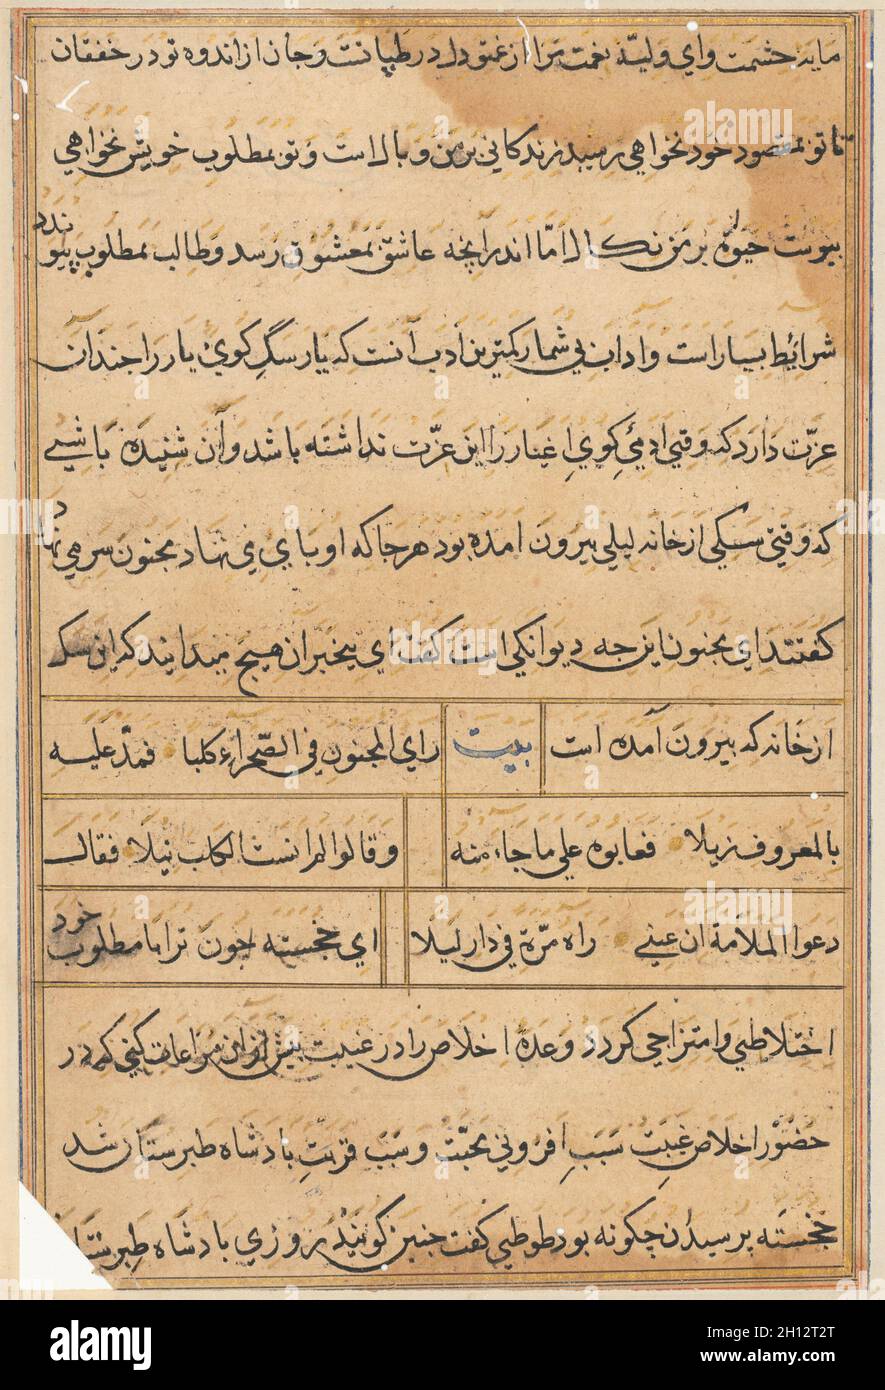 مایه حشمت وای ولیّه نعمت مرا از غم تو دل در طپانست وجان از اندوه تو در خفقان
تا تو بمقصود خود نخواهی رسید زندکانی بر من وبالست وتو بمطلوب خویش نخواهی
پیوست حیوة بر من نکال امّا اندرانچه عاشق بمعشوق رسد وطالب بمطلوب پیوندد
شرایط بسیارست واداب بی شمار کمترین ادب آنست که یار سگ کوی یار را چندان
عزّت دارد که وقتی ادمئ کوی اغیار را این عزّت نداشته باشد وآن شنیده باشی
که وقتی سکی از خانه لیلی بیرون امده بود هر جا که او پای می نهاد مجنون سر می نهاد
کفتند ای مجنون این چه دیوانکی است کفت ای بیخبران هیچ میدانید که این سک
از خانه که بیرون آمده است بیت رای المجنون فی الصّحراء کلبا فمدّ علیه
بالمعروف ذیلا فعابوه علی ما جاء منه وقالوا لم انست الکلب نیلا فقال
دعوا الملامة ان عینی راه مرّة فی دار لیلا ای خجسته چون ترا با مطلوب خود
اختلاطی وامتزاجی کردد وعده اخلاص را در غیبت بیش از ان مراعات کنی که در
حضور اخلاص غیبت سبب افزونی محبّت وسبب قربت بادشاه طبرستان شد
خجسته پرسید آن چکونه بود طوطی کفت چنین کویند روزی بادشاه طبرستان
alamy
Image ID: 2H12T2T
www.alamy.com